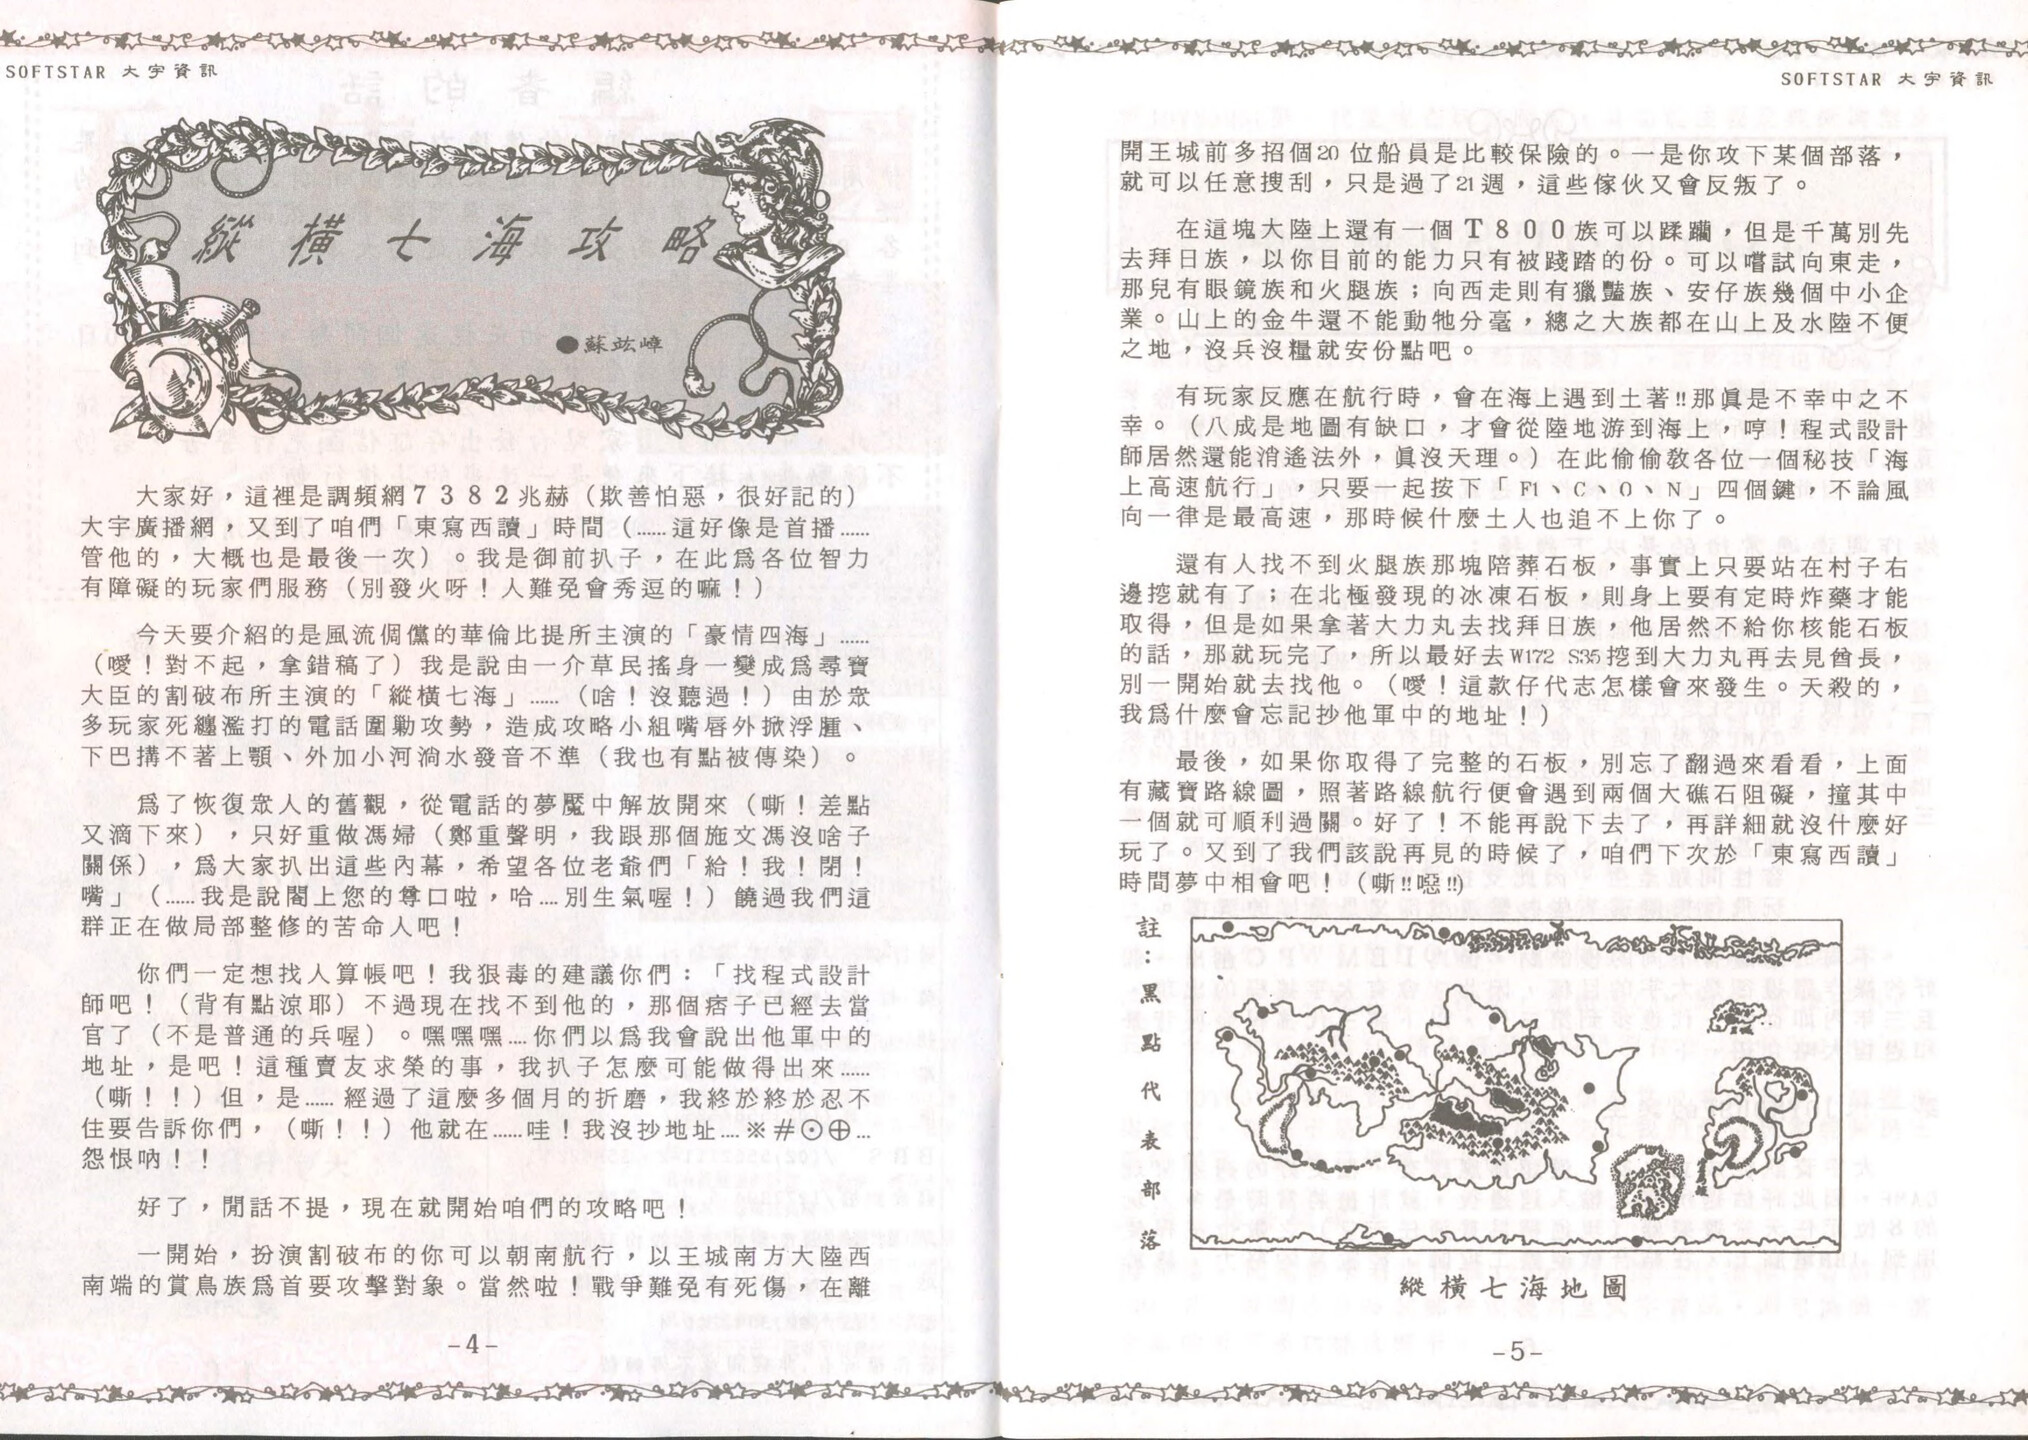 SOFTSTAR 大宇資訊
縱橫七海攻略
●蘇竑嶂
大家好，這裡是調頻網7382兆赫（欺善怕惡，很好記的）
大宇廣播網，又到了咱們「東寫西讀」時間（……這好像是首播……
管他的，大概也是最後一次）。我是御前扒子，在此爲各位智力
有障礙的玩家們服務（別發火呀！人難免會秀逗的嘛！）
今天要介紹的是風流倜儻的華倫比提所主演的「豪情四海」……
（噯！對不起，拿錯稿了）我是說由一介草民搖身一變成爲尋寶
大臣的割破布所主演的「縱橫七海」……（啥！沒聽過！）由於眾
多玩家死纏濫打的電話圍勦攻勢，造成攻略小組嘴唇外掀浮腫、
下巴搆不著上顎、外加小河淌水發音不準（我也有點被傳染）。
爲了恢復眾人的舊觀，從電話的夢魘中解放開來（嘶！差點
又滴下來），只好重做馮婦（鄭重聲明，我跟那個施文馮沒啥子
關係），爲大家扒出這些內幕，希望各位老爺們「給！我！閉！
嘴」（……我是說閣上您的尊口啦，哈…別生氣喔！）饒過我們這
群正在做局部整修的苦命人吧！
你們一定想找人算帳吧！我狠毒的建議你們：「找程式設計
師吧！（背有點涼耶）不過現在找不到他的，那個痞子已經去當
官了（不是普通的兵喔）。嘿嘿嘿…你們以爲我會說出他軍中的
地址，是吧！這種賣友求榮的事，我扒子怎麼可能做得出來……
（嘶！！）但，是……經過了這麼多個月的折磨，我終於終於忍不
住要告訴你們，（嘶！！）他就在……哇！我沒抄地址…※＃⊙⊕…
怨恨吶！！
好了，閒話不提，現在就開始咱們的攻略吧！
一開始，扮演割破布的你可以朝南航行，以王城南方大陸西
南端的賞鳥族爲首要攻擊對象。當然啦！戰爭難免有死傷，在離
-4-
SOFTSTAR 大宇資訊
開王城前多招個20位船員是比較保險的。一是你攻下某個部落，
就可以任意搜刮，只是過了21週，這些傢伙又會反叛了。
在這塊大陸上還有一個T800族可以蹂躪，但是千萬別先
去拜日族，以你目前的能力只有被踐踏的份。可以嚐試向東走，
那兒有眼鏡族和火腿族；向西走則有獵豔族、安仔族幾個中小企
業。山上的金牛還不能動牠分毫，總之大族都在山上及水陸不便
之地，沒兵沒糧就安份點吧。
有玩家反應在航行時，會在海上遇到土著!!那眞是不幸中之不
幸。（八成是地圖有缺口，才會從陸地游到海上，哼！程式設計
師居然還能消遙法外，眞沒天理。）在此偷偷敎各位一個秘技「海
上高速航行」，只要一起按下「F1、C、O、N」四個鍵，不論風
向一律是最高速，那時候什麼土人也追不上你了。
還有人找不到火腿族那塊陪葬石板，事實上只要站在村子右
邊挖就有了；在北極發現的冰凍石板，則身上要有定時炸藥才能
取得，但是如果拿著大力丸去找拜日族，他居然不給你核能石板
的話，那就玩完了，所以最好去W172 S35挖到大力丸再去見酋長，
別一開始就去找他。（噯！這款仔代志怎樣會來發生。天殺的，
我爲什麼會忘記抄他軍中的地址！）
最後，如果你取得了完整的石板，別忘了翻過來看看，上面
有藏寶路線圖，照著路線航行便會遇到兩個大礁石阻礙，撞其中
一個就可順利過關。好了！不能再說下去了，再詳細就沒什麼好
玩了。又到了我們該說再見的時候了，咱們下次於「東寫西讀」
時間夢中相會吧！（嘶!!噁!!）
註：黑點代表部落
縱橫七海地圖
-5-